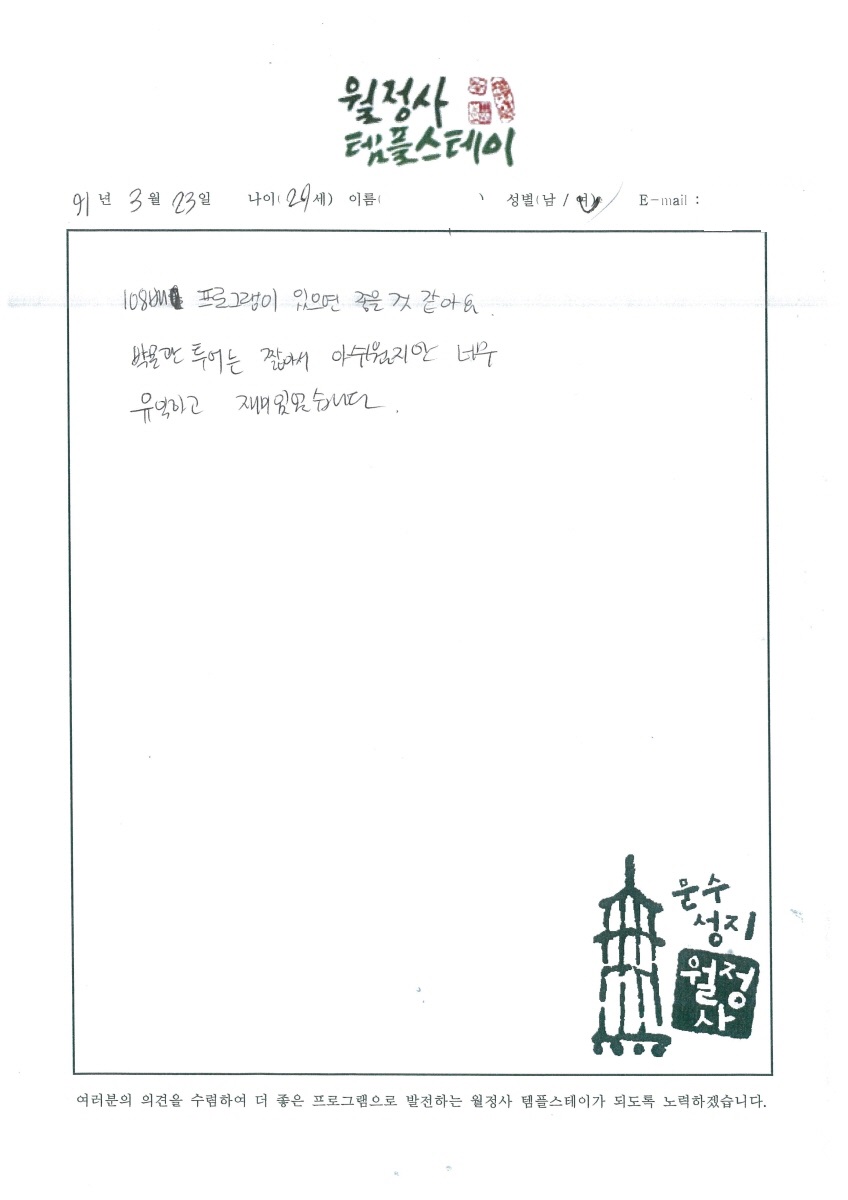 월정사
템플스테이
91년 3월 23일 나이(29세) 이름( ) 성별(남 / 여) E-mail :
108배 프로그램이 있으면 좋을 것 같아요.
박물관 투어는 짧아서 아쉬웠지만 너무
유익하고 재미있었습니다.
문수
성지
월정
사
여러분의 의견을 수렴하여 더 좋은 프로그램으로 발전하는 월정사 템플스테이가 되도록 노력하겠습니다.